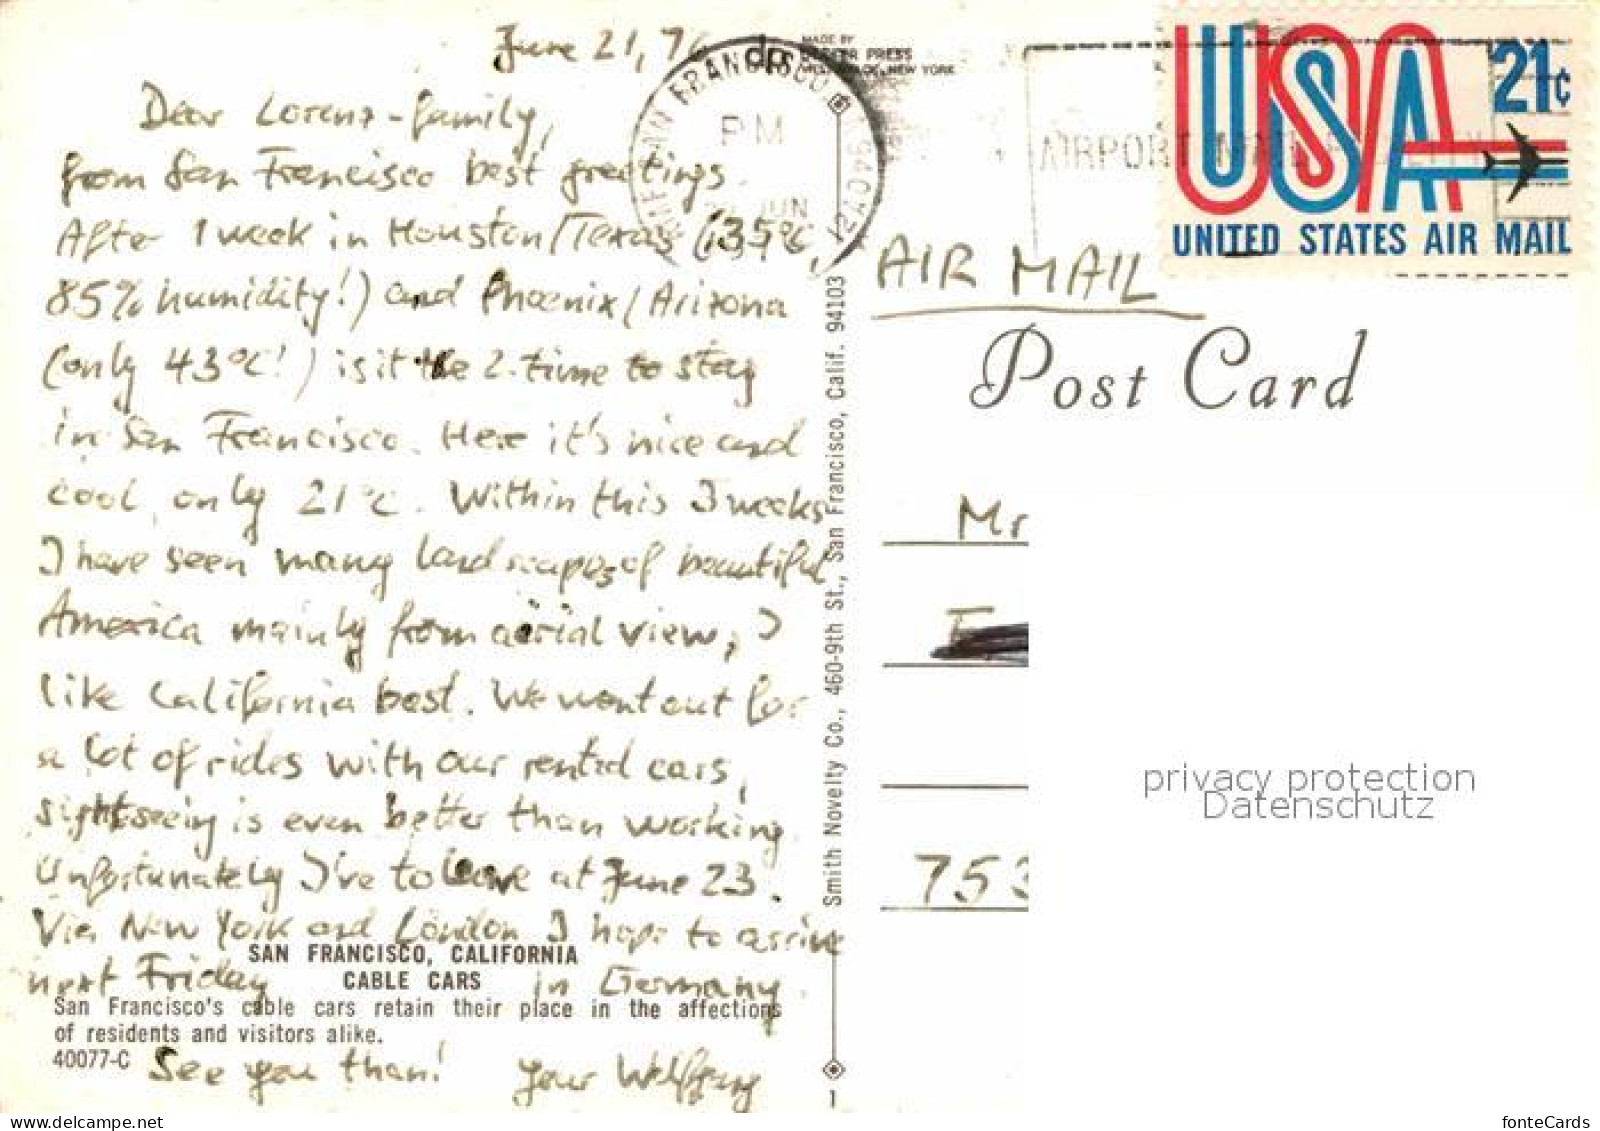 June 21, 76
Dear Lorenz-family,
from San Francisco best greetings.
After 1 week in Houston/Texas (35°C,
85% humidity!) and Phoenix/Arizona
(only 43°C!) is it the 2. time to stay
in San Francisco. Here it's nice and
cool, only 21°C. Within this 3 weeks
I have seen many landscapes of beautiful
America mainly from aerial view, I
like California best. We went out for
a lot of rides with our rented cars,
sightseeing is even better than working.
Unfortunately I've to leave at June 23.
Via New York and London I hope to arrive
next Friday in Germany.
See you than! your Wolfgang
SAN FRANCISCO, CALIFORNIA
CABLE CARS
San Francisco's cable cars retain their place in the affections
of residents and visitors alike.
40077-C
MADE BY
PRESS
NEW YORK
SAN FRANCISCO
PM
JUN
Smith Novelty Co., 460-9th St., San Francisco, Calif. 94103
1
AIRPORT MAIL
USA 21c
UNITED STATES AIR MAIL
AIR MAIL
Post Card
Mr
753
privacy protection
Datenschutz
www.delcampe.net
fonteCards